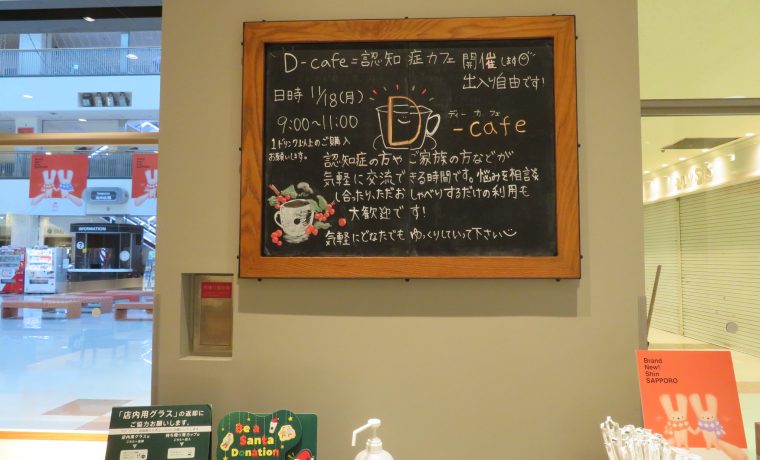 D-cafe=認知症カフェ 開催します
出入り自由です!
日時 11/18(月)
9:00~11:00
1ドリンク以上のご購入
お願いします。
ディー カフェ
D-cafe
認知症の方やご家族の方などが
気軽に交流できる時間です。悩みを相談
し合ったり、ただおしゃべりするだけの利用も
大歓迎です!
気軽にどなたでもゆっくりしていって下さい
INFORMATION
「店内用グラス」の返却に
ご協力お願いします。
店内用グラスは
持ち帰り用カップは
Be a
Santa
Donation
Brand
New!
Shin
SAPPORO